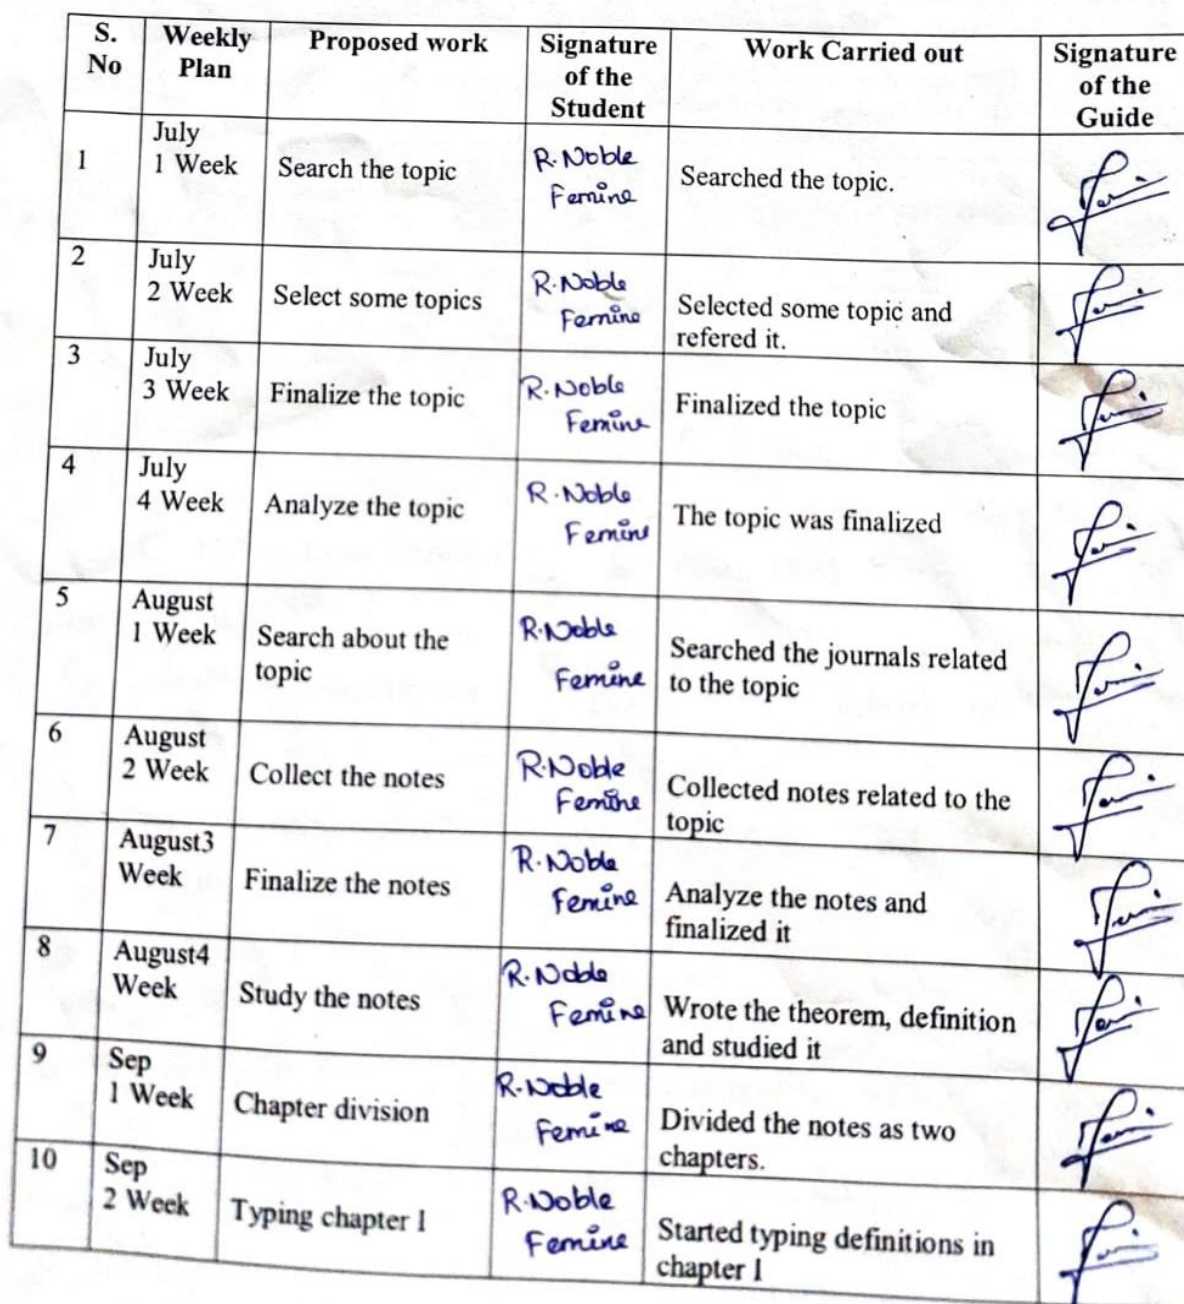 S. No
Weekly Plan
Proposed work
Signature of the Student
Work Carried out
Signature of the Guide
1
July
1 Week
Search the topic
R. Noble
Femine
Searched the topic.
2
July
2 Week
Select some topics
R. Noble
Femine
Selected some topic and
refered it.
3
July
3 Week
Finalize the topic
R. Noble
Femine
Finalized the topic
4
July
4 Week
Analyze the topic
R. Noble
Femine
The topic was finalized
5
August
1 Week
Search about the
topic
R. Noble
Femine
Searched the journals related
to the topic
6
August
2 Week
Collect the notes
R. Noble
Femine
Collected notes related to the
topic
7
August3
Week
Finalize the notes
R. Noble
Femine
Analyze the notes and
finalized it
8
August4
Week
Study the notes
R. Noble
Femine
Wrote the theorem, definition
and studied it
9
Sep
1 Week
Chapter division
R. Noble
Femine
Divided the notes as two
chapters.
10
Sep
2 Week
Typing chapter 1
R. Noble
Femine
Started typing definitions in
chapter 1